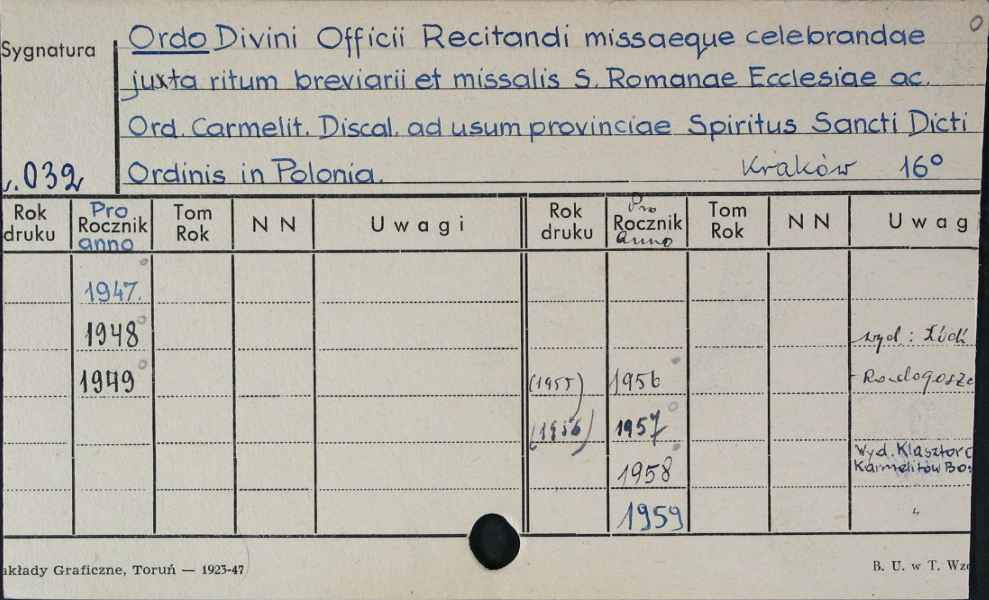 Sygnatura
Ordo Divini Officii Recitandi missaeque celebrandae
juxta ritum breviarii et missalis S. Romanae Ecclesiae ac.
Ord. Carmelit. Discal. ad usum provinciae Spiritus Sancti Dicti
.032 Ordinis in Polonia. Kraków 16°
Rok druku Pro Rocznik anno Tom Rok N N Uwagi Rok druku Pro Rocznik anno Tom Rok N N Uwag
1947.
1948 wyd: Łódź
1949 (1955) 1956 - Radogoszc
(1956) 1957
1958 Wyd. Klasztor O
Karmelitów Bos
1959 "
akłady Graficzne, Toruń — 1925-47 B. U. w T. Wzó